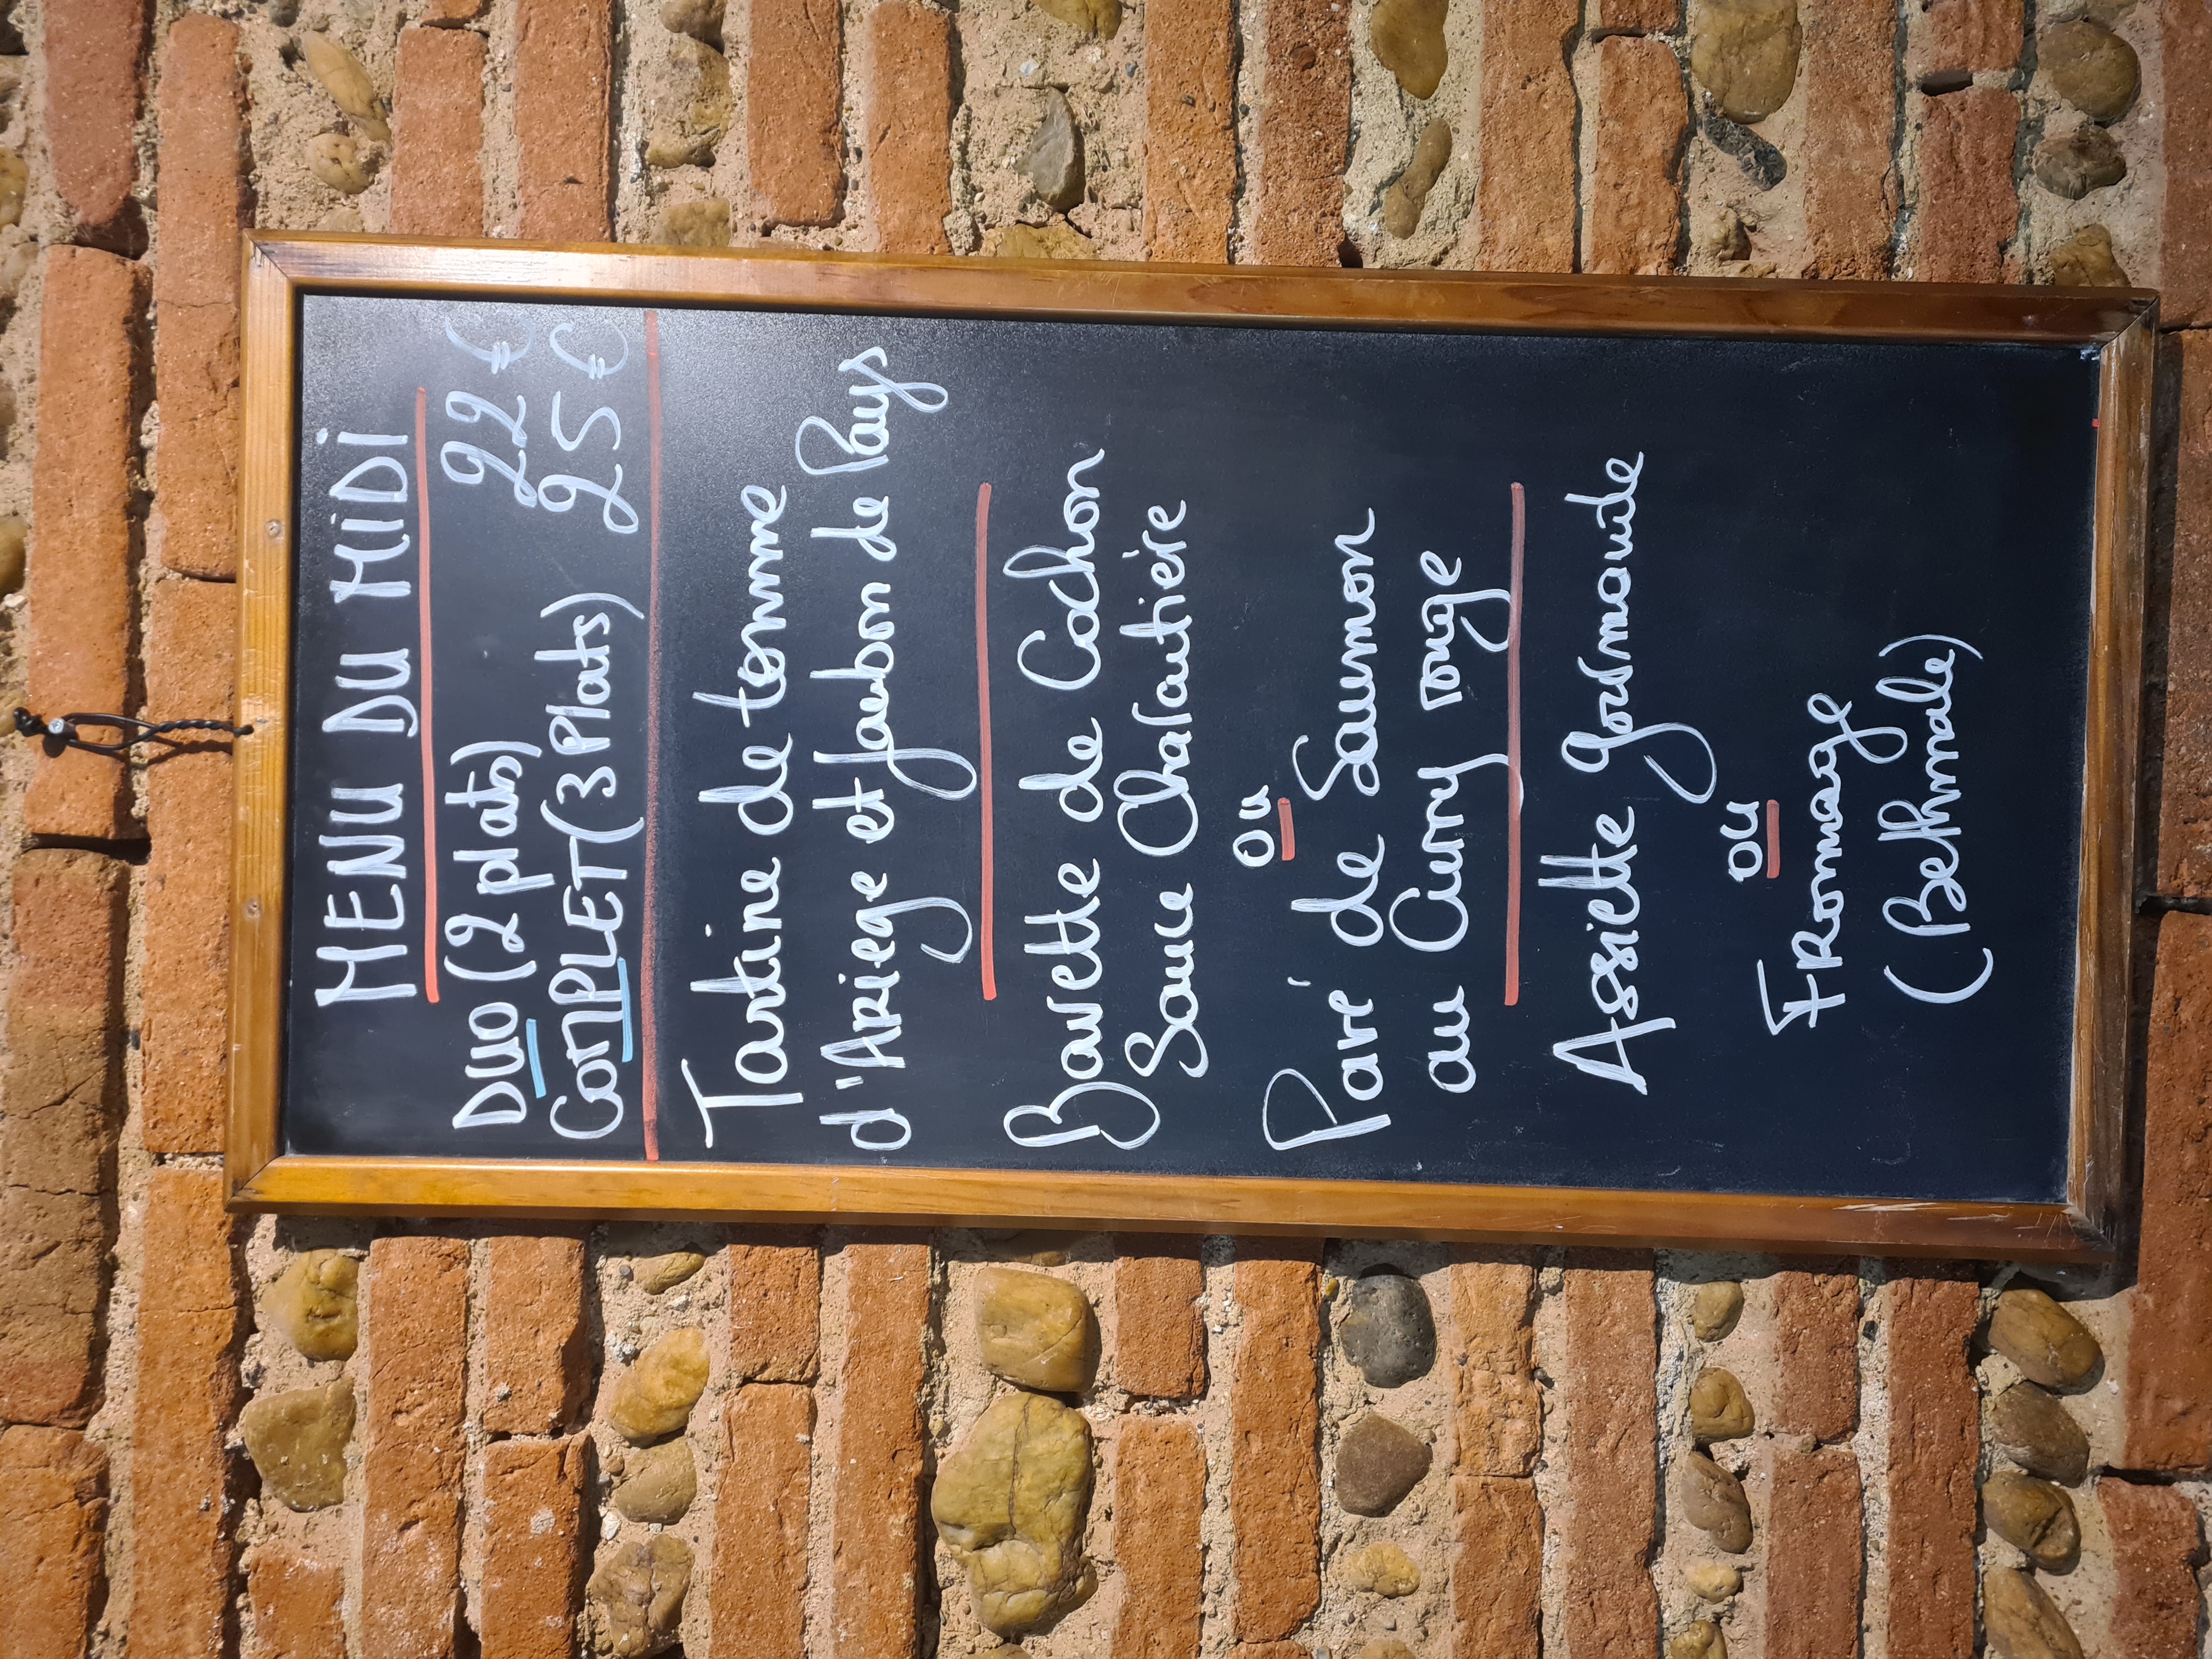 MENU DU MIDI
DUO (2 plats) 22 €
COMPLET (3 Plats) 25 €
Tartine de tomme
d'Ariege et Jambon de Pays
Bavette de Cochon
Sauce Charcutière
ou
Pavé de Saumon
au Curry rouge
Assiette gourmande
ou
FRomage
(Bethmale)